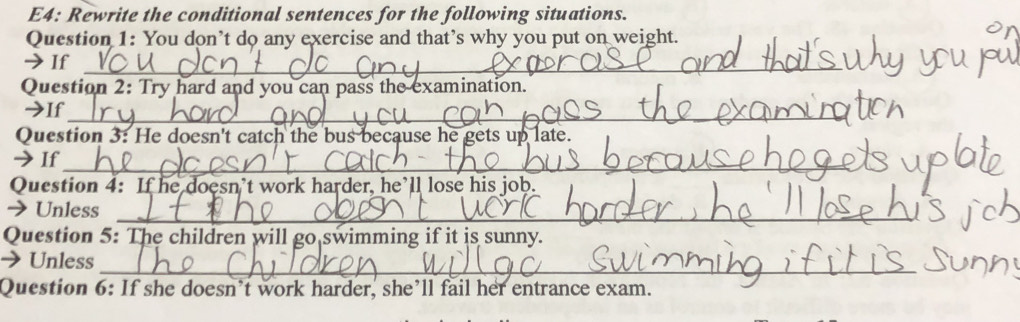 E4: Rewrite the conditional sentences for the following situations.
Question 1: You don't do any exercise and that's why you put on weight.
→ If You don't do any exaorase and that's why you put on
Question 2: Try hard and you can pass the examination.
→If Try hard and you can pass the examination
Question 3: He doesn't catch the bus because he gets up late.
→ If he doesn't catch the bus because he gets up late
Question 4: If he doesn't work harder, he'll lose his job.
→ Unless If he doesn't work harder, he'll lose his job
Question 5: The children will go swimming if it is sunny.
→ Unless The children will go swimming if it is sunny
Question 6: If she doesn't work harder, she'll fail her entrance exam.